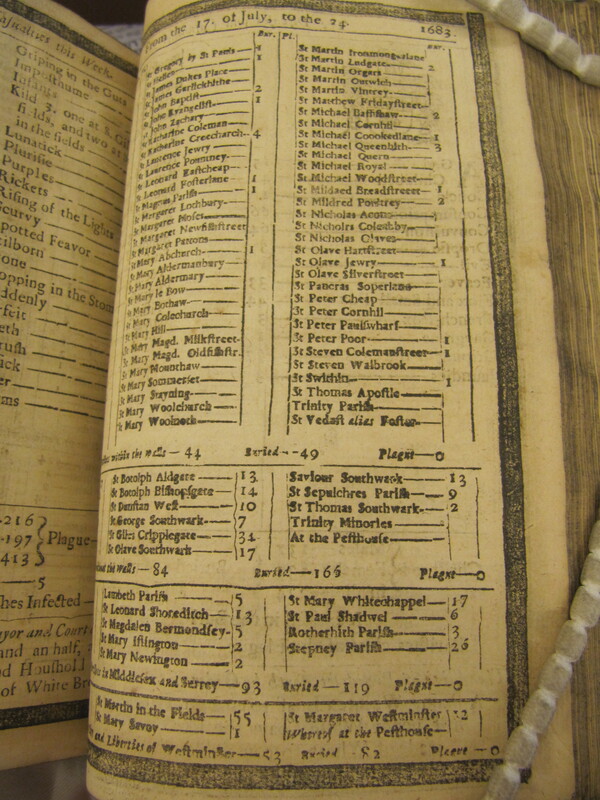 Casualties this Week.
Griping in the Guts
Impoſthume
Infants
Kild 3. one at S. G
fields, and two at
in the fields
Lunatick
Pluriſie
Purples
Rickets
Riſing of the Lights
Scurvy
Spotted Feavor
Stilborn
Stopping in the Stom
Suddenly
216
197 Plague
413
5
hes Infected
ayor and Court
and an half,
of White Br
From the 17. of July, to the 24. 1683
Bur. Pl.
St Gregory by St Pauls
St Hellen 1
St James Dukes Place
St James Garlickhithe 2
St John Baptiſt 1
St John Evangeliſt
St John Zachary
St Katharine Coleman
St Katharine Creechurch 4
St Laurence Jewry
St Laurence Pountney
St Leonard Eaſtcheap
St Leonard Foſterlane 1
St Magnus Pariſh 1
St Margaret Lothbury
St Margaret Moſes
St Margaret Newfiſhſtreet
St Margaret Pattons
St Mary Abchurch 1
St Mary Aldermanbury
St Mary Aldermary
St Mary le Bow
St Mary Bothaw
St Mary Colechurch
St Mary Hill
St Mary Magd. Milkſtreet
St Mary Magd. Oldfiſhſtr.
St Mary Mounthaw
St Mary Sommerſet
St Mary Stayning
St Mary Woolchurch
St Mary Woolnoth
Bur.
St Martin Ironmongerlane
St Martin Ludgate 2
St Martin Orgars
St Martin Outwich
St Martin Vintrey
St Matthew Fridayſtreet
St Michael Baſſiſhaw 2
St Michael Cornhil
St Michael Crookedlane 1
St Michael Queenhith 3
St Michael Quern
St Michael Royal
St Michael Woodſtreet
St Mildred Breadſtreet 1
St Mildred Poultrey 2
St Nicholas Acons
St Nicholas Coleabby
St Nicholas Olaves
St Olave Hartſtreet
St Olave Jewry 1
St Olave Silverſtreet
St Pancras Soperlane
St Peter Cheap
St Peter Cornhil
St Peter Paulſwharf
St Peter Poor 1
St Steven Colemanſtreet 1
St Steven Walbrook
St Swithin 1
St Thomas Apoſtle
Trinity Pariſh
St Vedaſt alias Foſter
within the walls 44 Buried 49 Plague 0
St Botolph Aldgate 13
St Botolph Biſhopſgate 14
St Dunſtan Weſt 10
St George Southwark 7
St Giles Cripplegate 34
St Olave Southwark 17
Saviour Southwark 13
St Sepulchres Pariſh 9
St Thomas Southwark 2
Trinity Minories
At the Peſthouſe
the Walls 84 Buried 166 Plague 0
Lambeth Pariſh 5
St Leonard Shoreditch 13
St Magdalen Bermondſey 5
St Mary Iſlington 2
St Mary Newington 2
St Mary Whitechappel 17
St Paul Shadwel 6
Rotherhith Pariſh 3
Stepney Pariſh 26
in Middleſex and Surrey 93 Buried 119 Plague 0
St Martin in the Fields 55
St Mary Savoy 1
St Margaret Weſtminſter
Whereof at the Peſthouſe
and Liberties of Weſtminſter 53 Buried 82 Plague 0